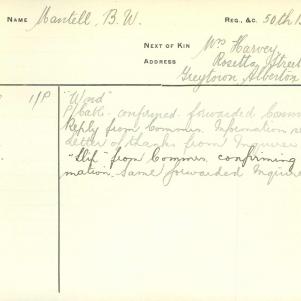 NAME Mantell, B. W.
REG., &C. 50th B
NEXT OF KIN Mrs Harvey,
ADDRESS Rosetta Street
Greytown Alberton
1/P "Word"
P/Cable confirmed forwarded Comm
Reply from Commrs. Information
Letter of thanks from Inquirer
"Slip" from Commrs, confirming
mation. Same forwarded Inquire